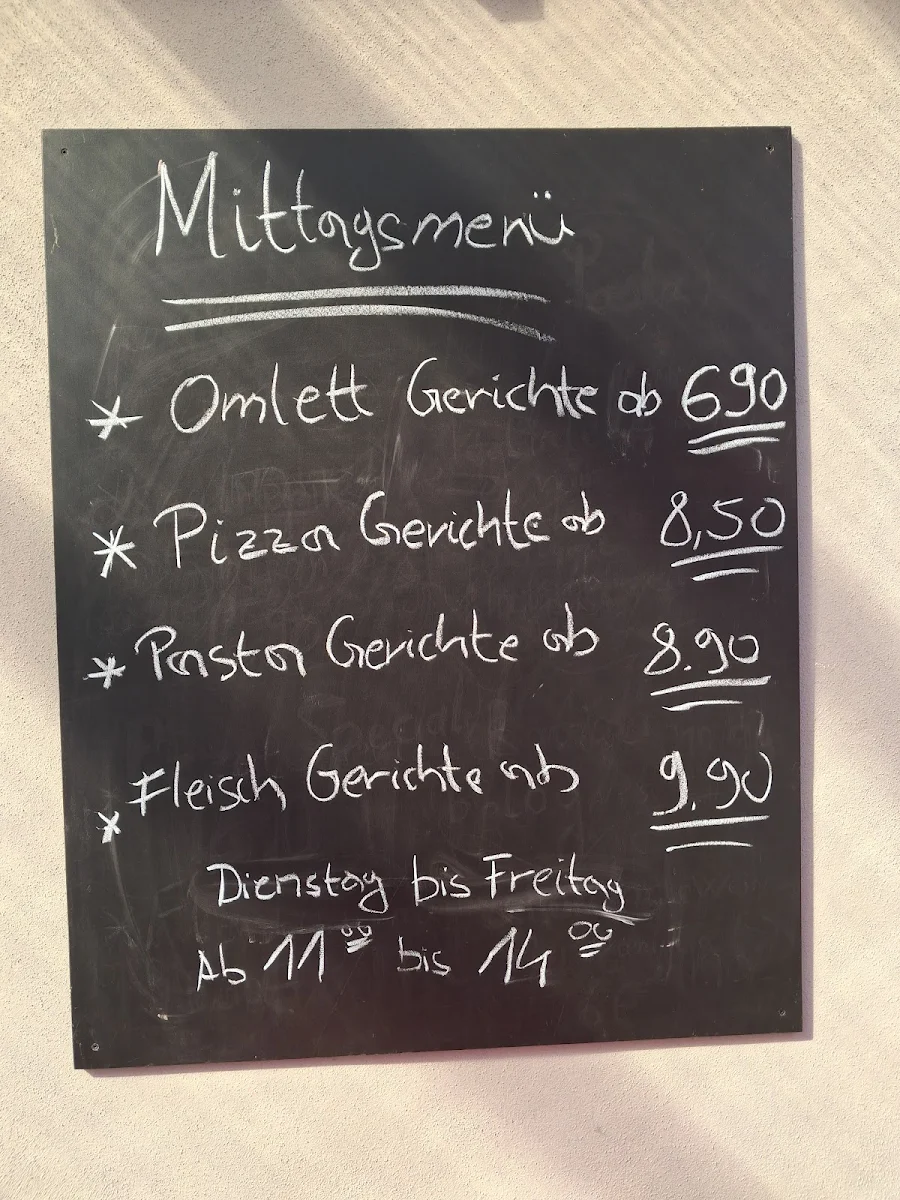 Mittagsmenü
* Omlett Gerichte ab 690
* Pizza Gerichte ab 8,50
* Pasta Gerichte ab 8.90
* Fleisch Gerichte ab 9.90
Dienstag bis Freitag
Ab 11 00 bis 14 00